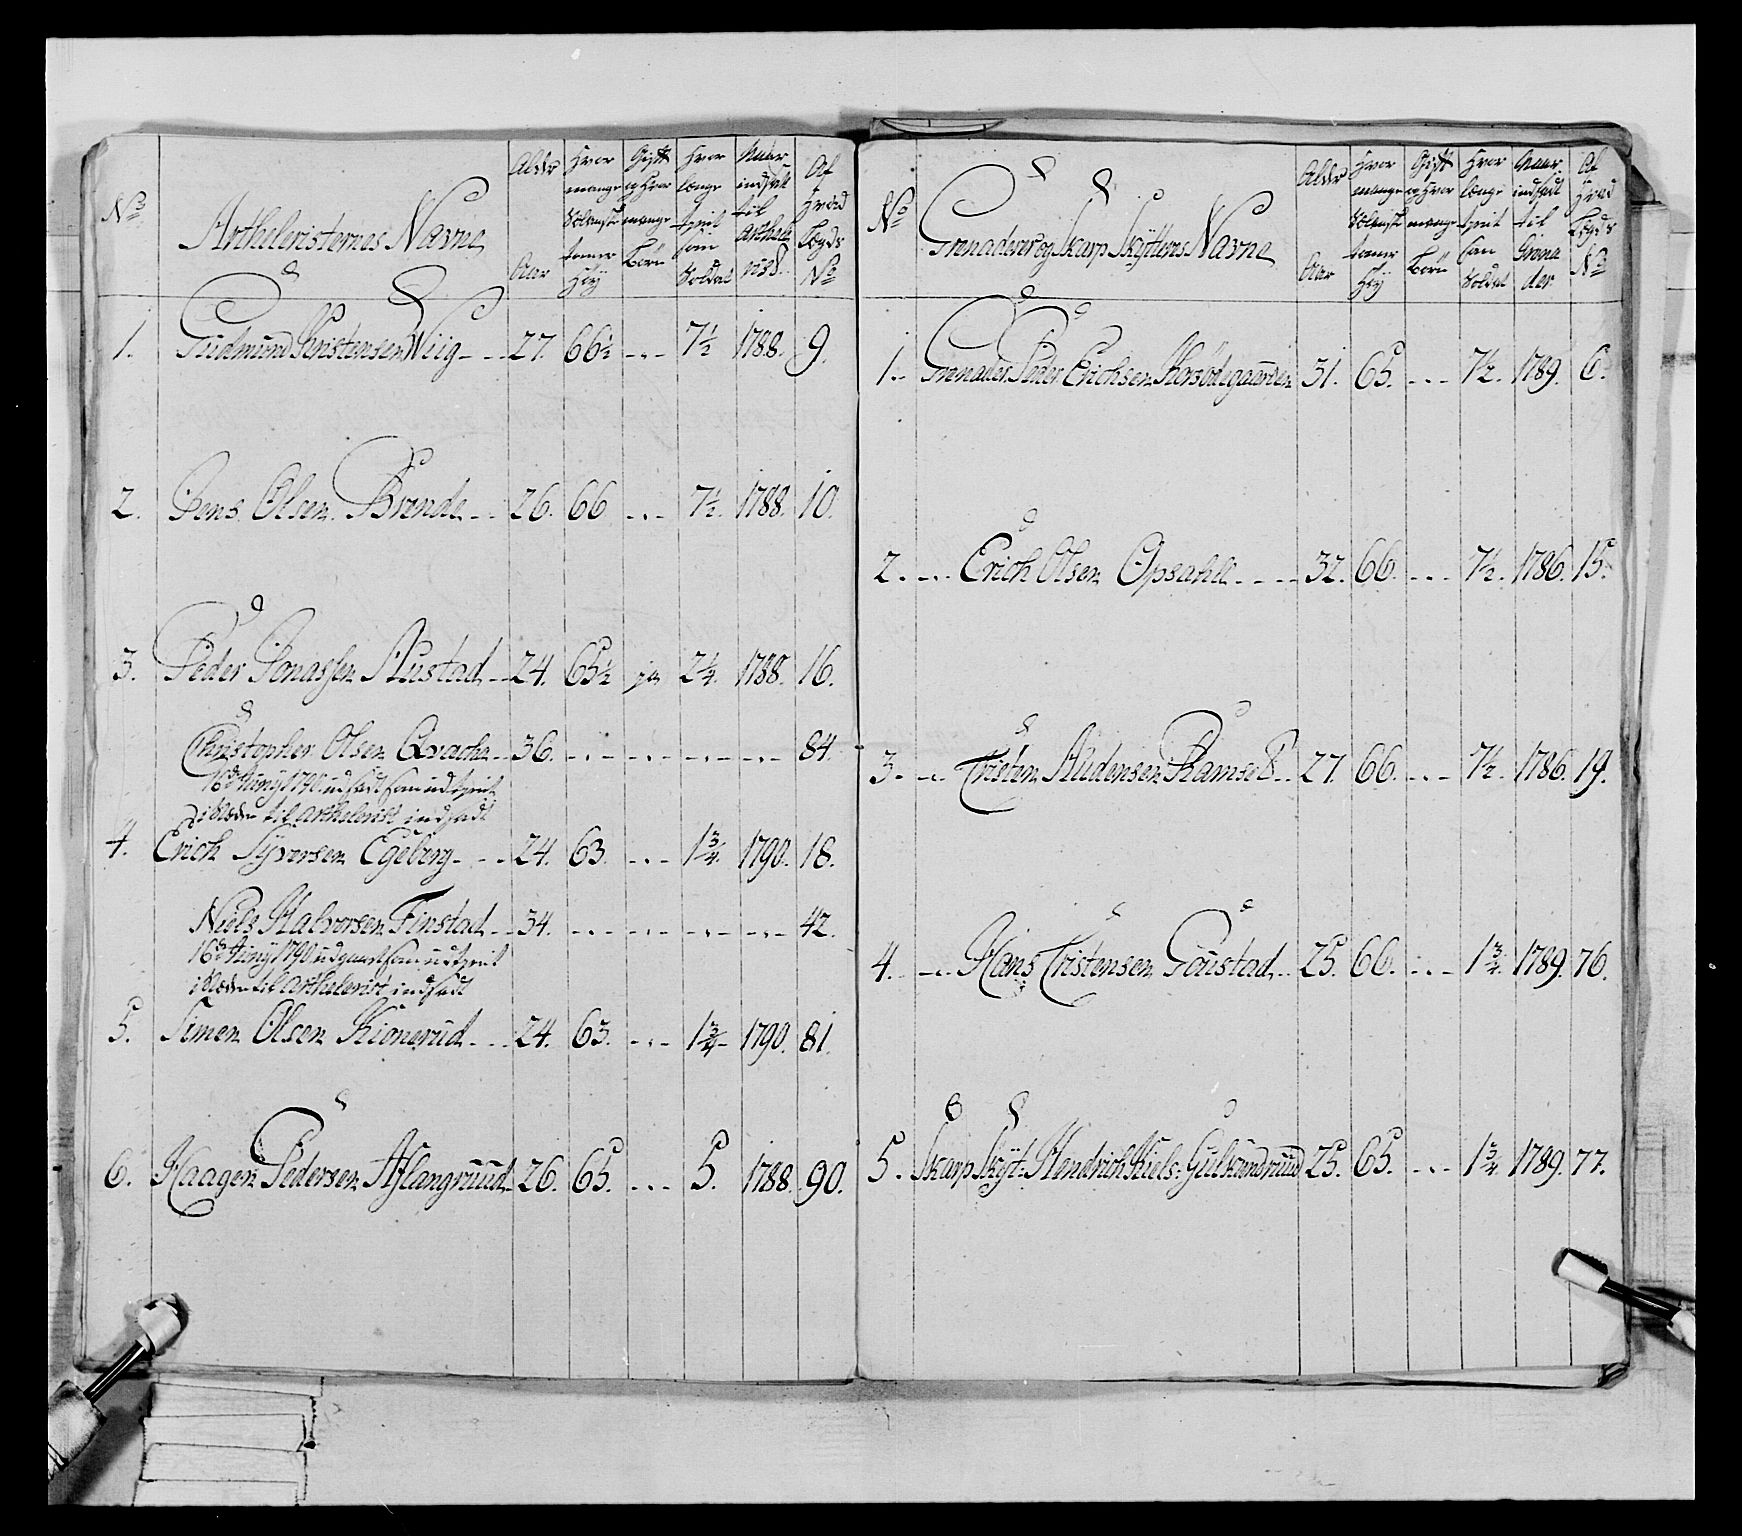 No
Artheleristernes Navne
Alder Aar
Hvor mange Solenske tomer Høy
Gift og Hvor mange Børn
Hvor længe tient som Soldat
Naar indsatt til Arthelerist
Af Hvad Lægds No
1. Gudmund Kristensen Wiig 27. 66½ 7½ 1788. 9.
2. Jens Olsen Brende 26. 66 7½. 1788. 10.
3. Peder Jonassen Austad 24. 65½ ja 2¼. 1788. 16.
Christopher Olsen Qvache 36. 84.
16de Juny 1790 udsadt som udtient
i Steden til Arthelerist indsadt
4. Erich Syversen Egeberg 24. 63. 1¾. 1790. 18.
Niels Halvorsen Finstad 34. 42.
16de Juny 1790 udgaaet som udtient
i Steden til Arthelerist indsadt
5. Simen Olsen Kionerud 24. 63. 1¾ 1790. 81.
6. Haagen Pedersen Aslangruud 26. 65. 5. 1788. 90.
No
Grenaderer og Skarp Skytteres Navne
Alder Aar
Hvor mange Solenske tomer Høy
Gift og Hvor mange Børn
Hvor længe tient som Soldat
Naar indsadt til Grenader
Af Hvad Lægds No
1. Grenader Peder Erichsen Korsødegaarden 31. 65. 7½. 1789. 6.
2. Erich Olsen Opsahll 32. 66. 7½. 1786. 15.
3. Tristen Audensen Ramse 27. 66. 7½. 1786. 19.
4. Hans Tristensen Goustad 25. 66. 1¾. 1789. 76.
5. Skarp Skyt: Hendrich Niels: Gulbrandruud 25. 65. 1¾ 1789. 77.